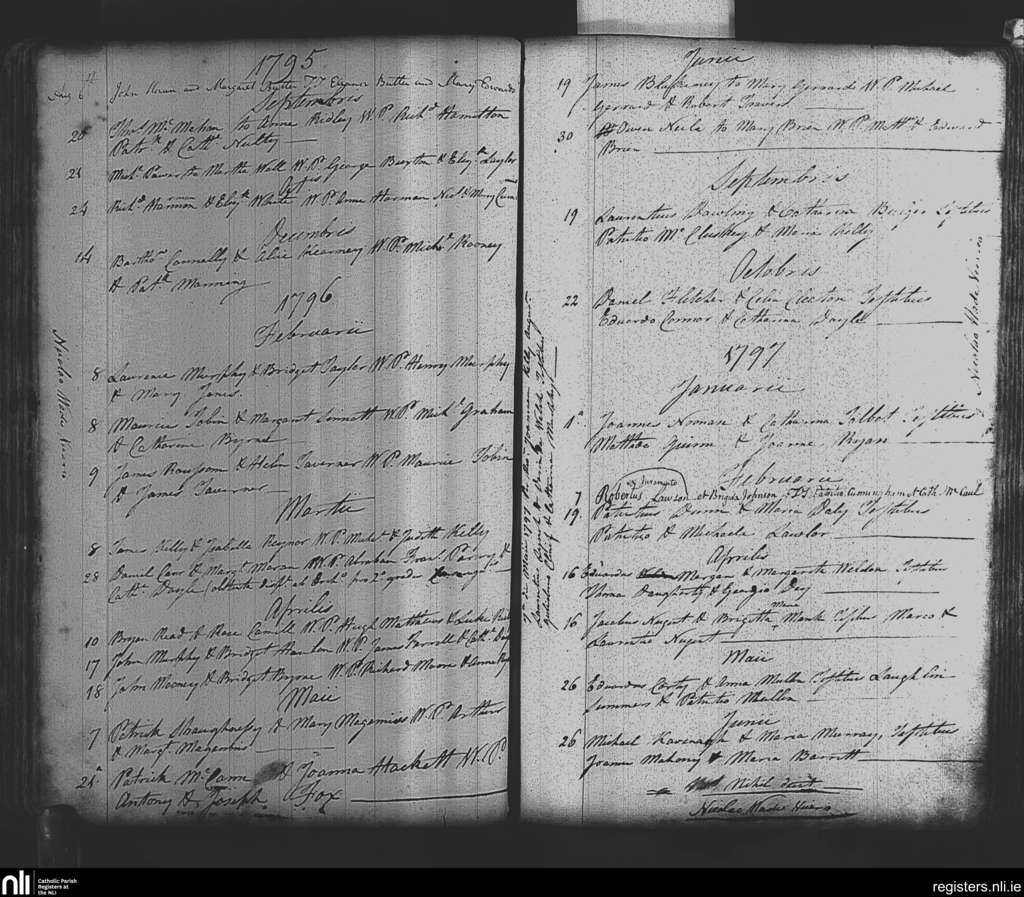 1795
John and Margaret Eleanor Butler and Mary Edwards
Septembris
20 Thos. McMehan to Anne Ridley W.P. Richd Hamilton
Patrk & Cathe Nulty
21 Michl Power to Martha Wall W.P. George Burton & Elizth Taylor
24 Richd Harman & Elizth White W.P. Anne Harman Nics & Mary
Decembris
14 Bartho Connolly & Alice Kearney W.Ps. Michl Rooney
& Patk Manning
1796
Februarii
8 Laurence Murphy & Bridget Taylor W.Ps. Henry Murphy
& Mary Jones.
8 Maurice Tobin & Margaret Sinnott W.Ps. Michl Graham
& Catharine Byrne
9 James Roussom & Helen Taverner W.P. Maurice Tobin
& James Taverner
Martii
8 James Kelly & Isabella Reynor W.P. Michl & Judith Kelly
28 Daniel Carr & Margt Moran W.Ps. Abraham
Cathe Doyle
Aprilis
10 Bryan Read & Rose Camill W.P. Hugh Mathews & Luke
17 John Murphy & Bridget Hanlon W.P. James Farrell & Cathe
18 John Mooney & Bridget Byrne W.Ps. Richard Moore & Anne
Maii
7 Patrick Shaughnessy & Mary Magenniss W.Ps. Arthur
& Margt Magenniss
21 Patrick McCann & Joanna Hackett W.Ps.
Antony & Joseph Fox
Nicolas Wade Vicario
Junii
19 James Blakeney to Mary Gerrard W.P. Michael
Gerrard & Robert Travers
30 Owen Neile to Mary Brien W.P. Matthw & Edward
Brien
Septembris
19 Laurentius Dowling & Catharina Burges Testibus
Patritio McCluskey & Maria Kelly
Octobris
22 Daniel Fletcher & Celia Cleaton Testibus
Eduardo Connor & Catharina Doyle
1797
Januarii
11 Joannes Noonan & Catharina Talbot Testibus
Matthia Quinn & Joanne Ryan
Februarii
7 Robertus Lawson et Brigida Johnson, TT. Patritio Cunningham & Cath. McCaul
19 Patritius Dunn & Maria Daly Testibus
Patritio & Michaele Lawlor
Aprilis
16 Eduardus Morgan & Margarita Weldon Testibus
Thoma Daugherty & Georgio Dey
16 Jacobus Nugent & Brigitta Monk Testibus Marco &
Lauratia Nugent
Maii
26 Eduardus Corty & Anna Mullen Testibus Laughlin
Summers & Patritio Mullen
Junii
26 Michael Kavenagh & Maria Murray, Testibus
Joanne Mahony & Maria Barrett
Nihil deest
Nicolas Wade
Nicolas Wade Vicario
nli
Catholic Parish
Registers at
the NLI
registers.nli.ie